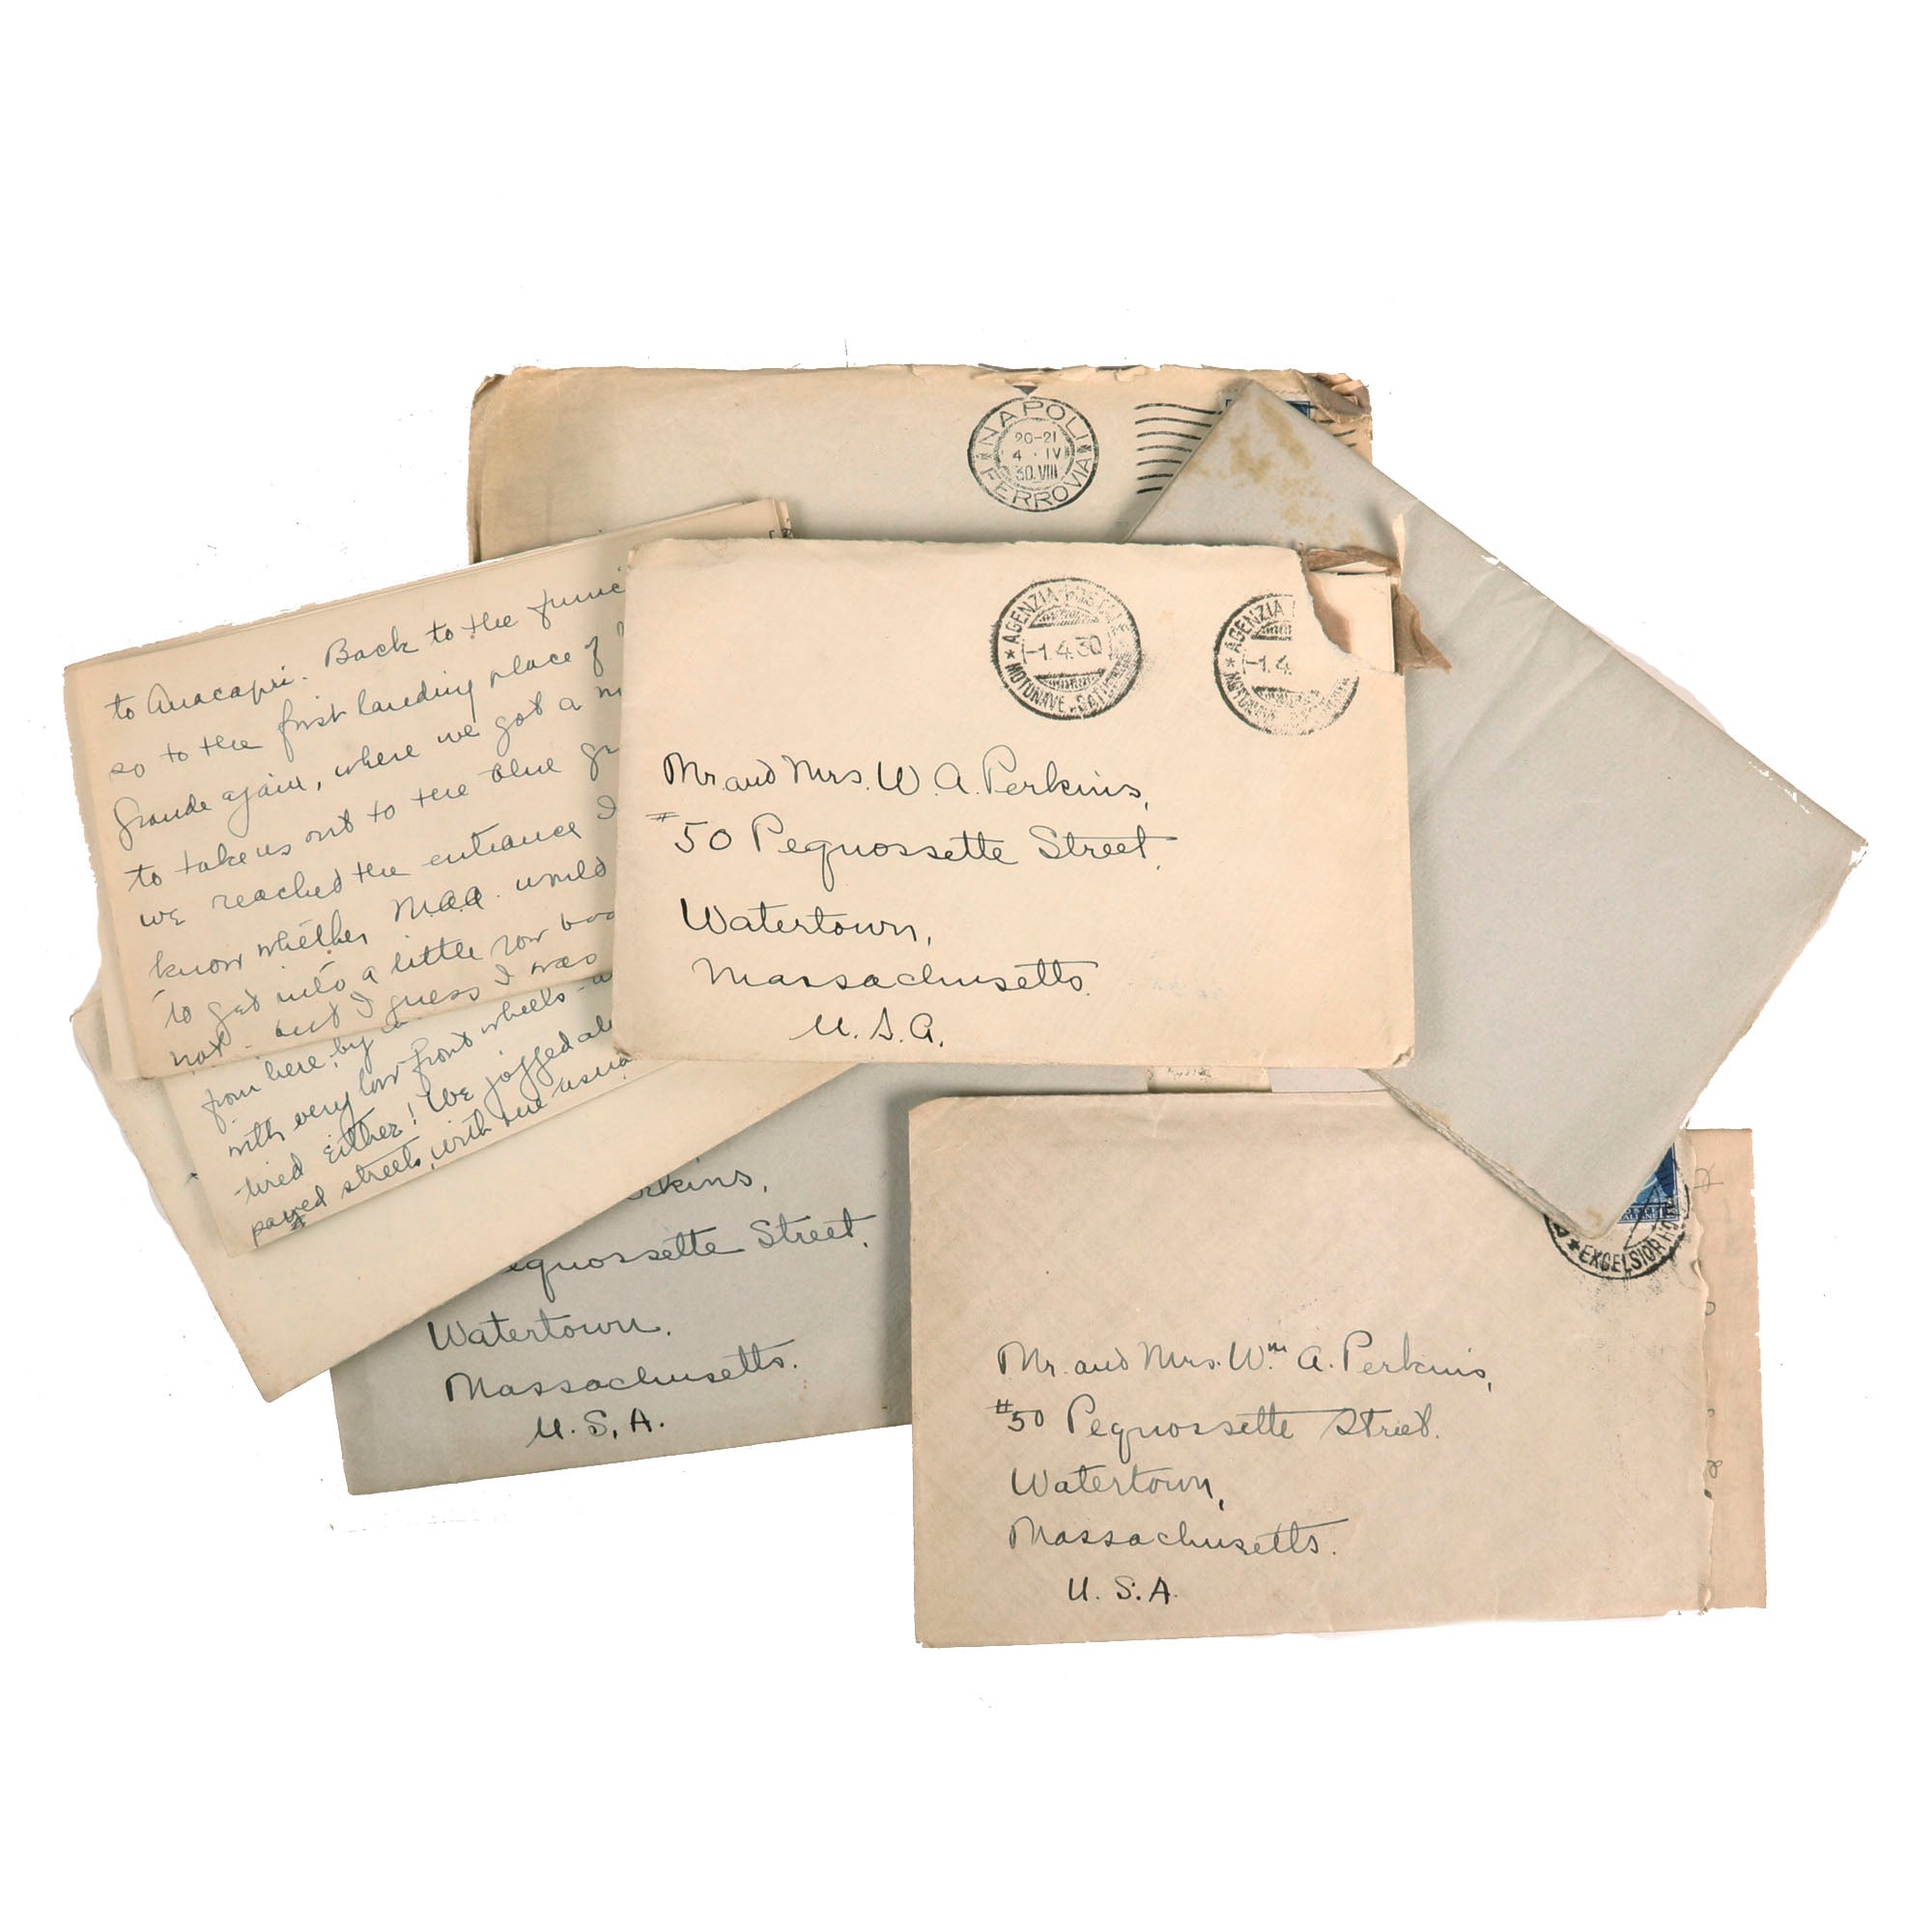 NAPOLI
20-21
4 · IV
30.VIII
FERROVIA
to Anacapri. Back to the funic
so to the first landing place of
Grande again, where we got a m
to take us out to the blue gr
we reached the entrance I
know whether M.A.A. would
to get into a little row boa
not - but I guess I was
from here, by a
with very low front wheels -
tired either! We jogged al
paved streets, with the usua
* AGENZIA POSTALE *
-1.4.30
MOTONAVE
* AGENZIA
-1.4
MOTONAVE
Mr. and Mrs. W. A. Perkins,
#50 Pequossette Street,
Watertown,
Massachusetts.
U.S.A.
rkins,
equossette Street,
Watertown.
Massachusetts.
U.S.A.
* EXCELSIOR HO
Mr. and Mrs. Wm A. Perkins,
#50 Pequossette Street.
Watertown,
Massachusetts.
U.S.A.